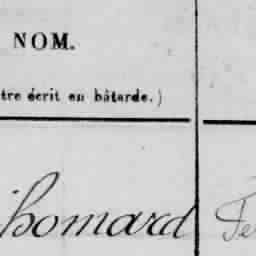 NOM.
tre écrit en bâtarde.)
homard Fe